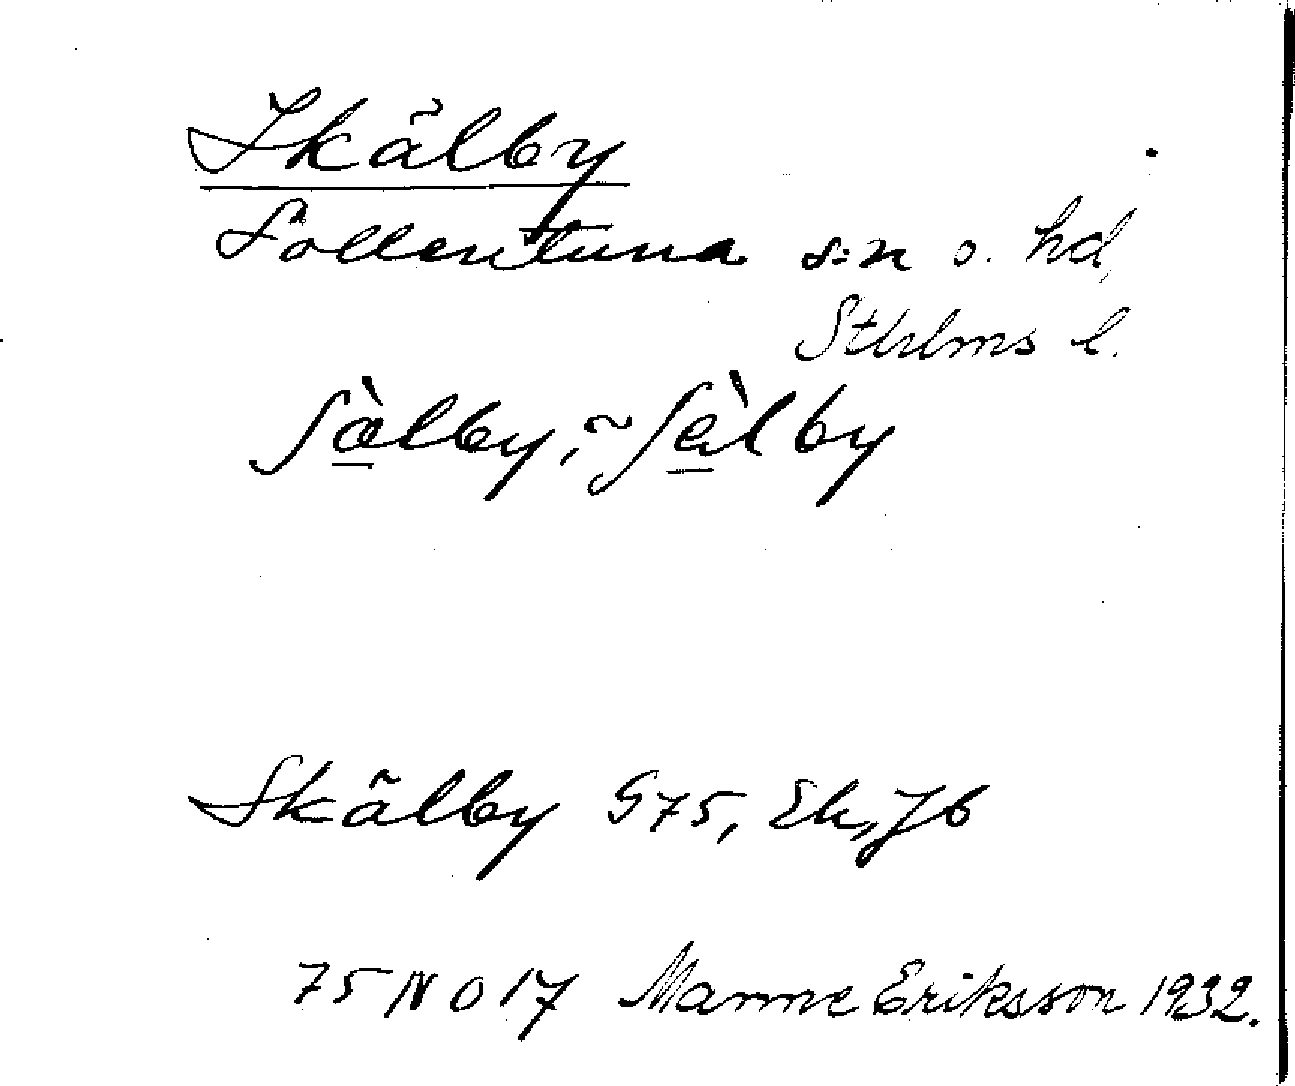 Skälby
Sollentuna s:n o. hd,
Sthlms l.
ʃæ̀lby, ~ ʃèlby
Skälby G75, Ek, Jb
75 NO 17 Manne Eriksson 1932.